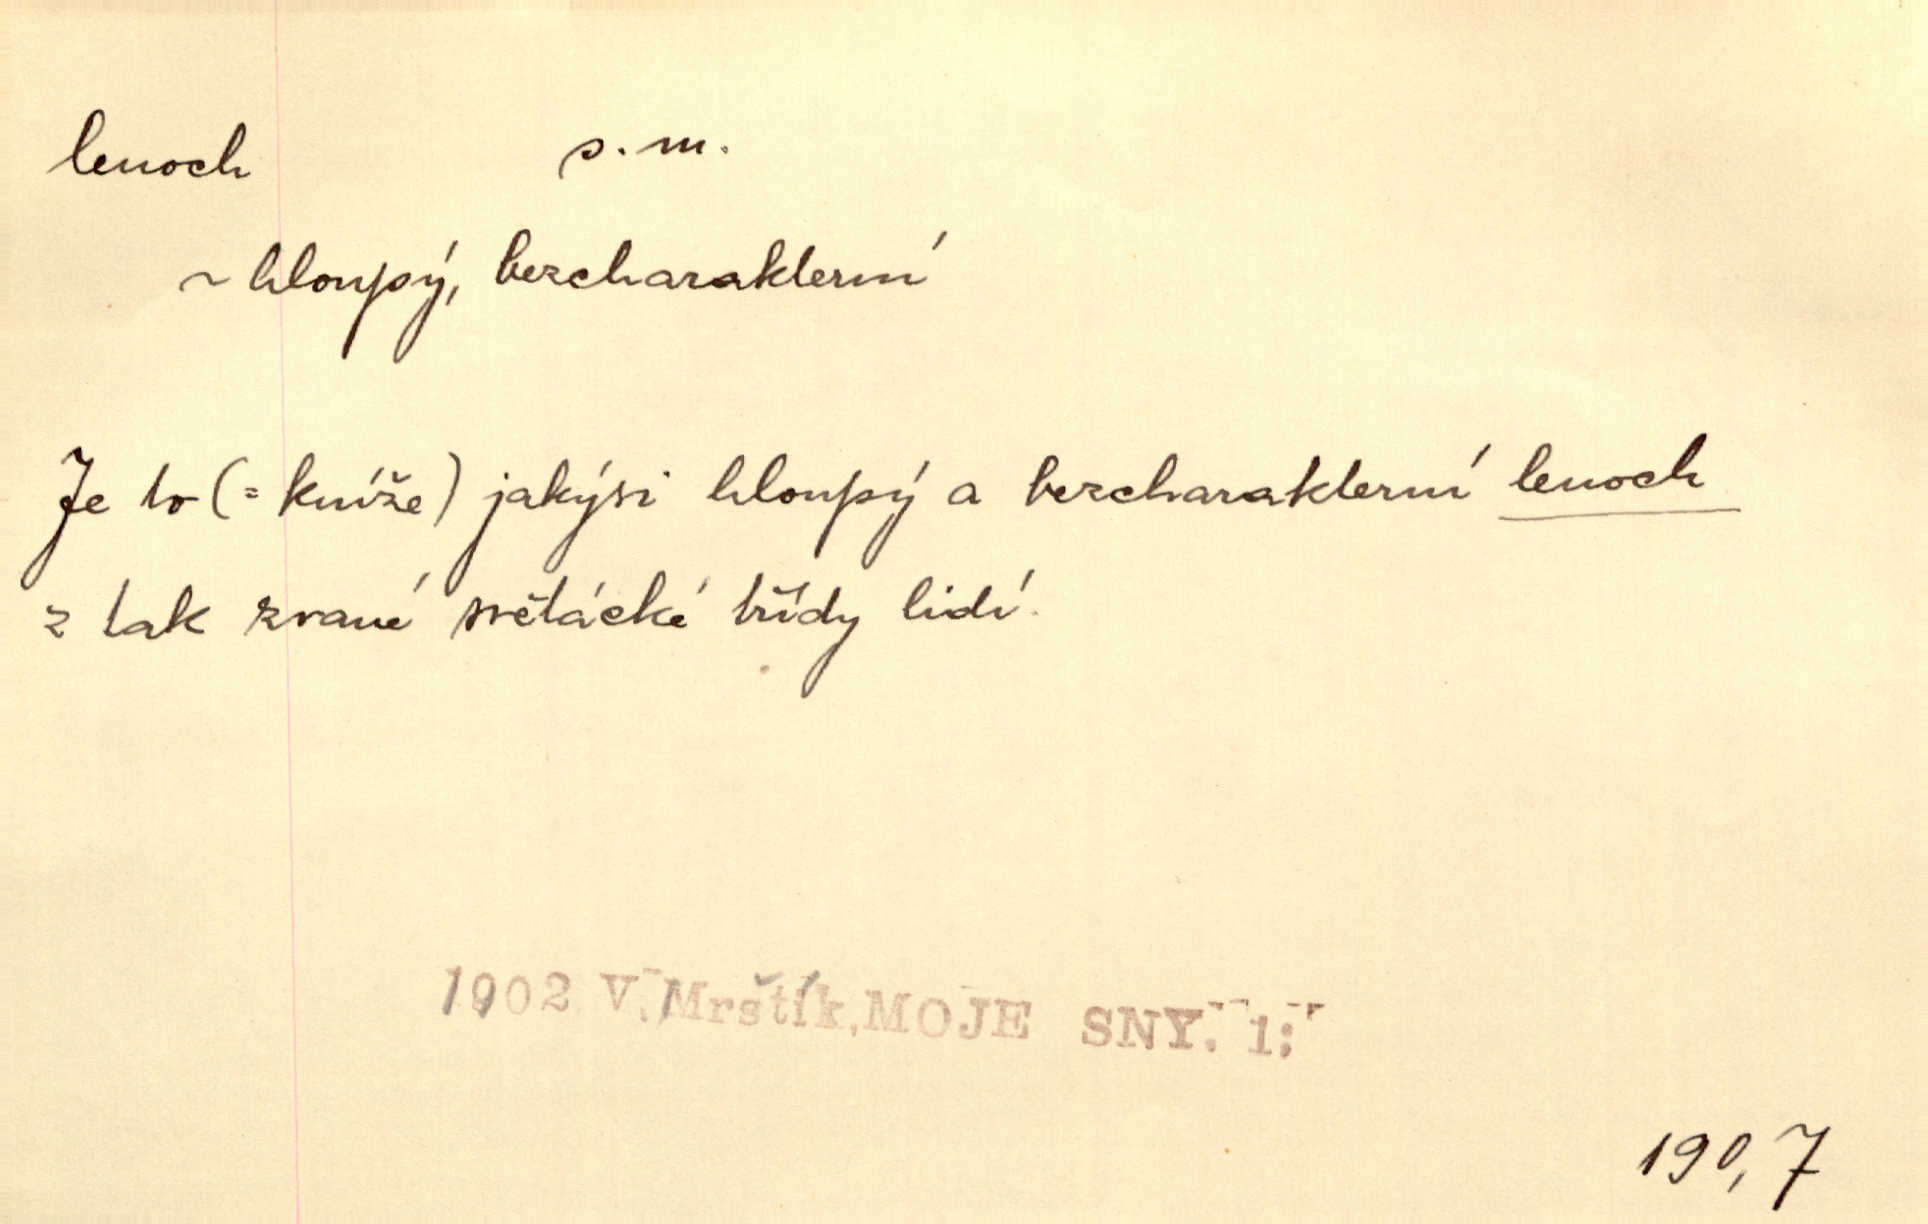 lenoch s. m.
~ hloupý, bezcharakterní
Je to (= kníže) jakýsi hloupý a bezcharakterní lenoch
z tak zvané světácké třídy lidí.
1902 V. Mrštík, MOJE SNY. 1;
190, 7